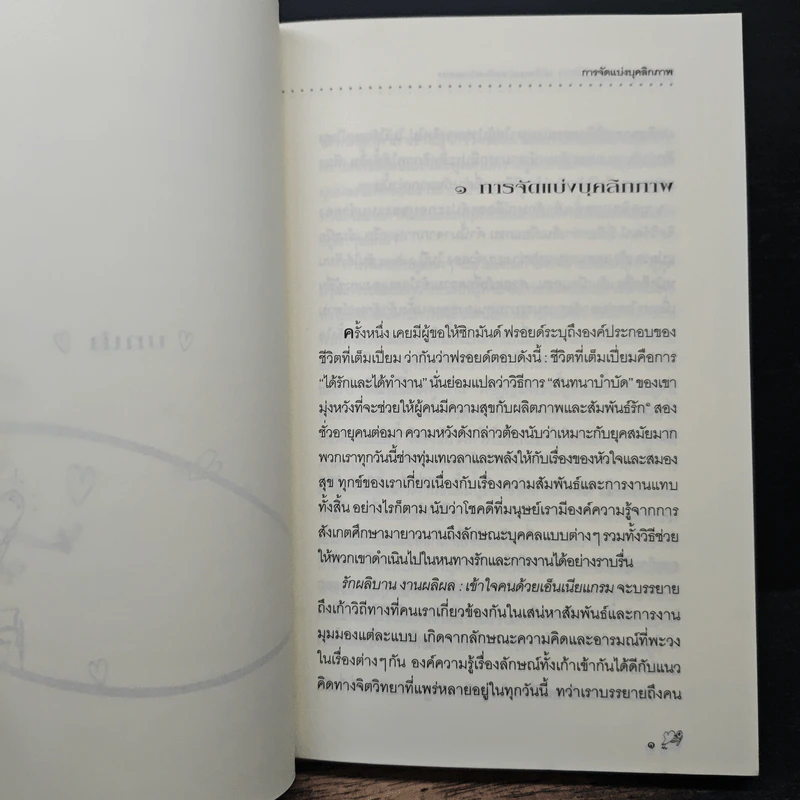 การจัดแบ่งบุคลิกภาพ
๑ การจัดแบ่งบุคลิกภาพ
ครั้งหนึ่ง เคยมีผู้ขอให้ซิกมันด์ ฟรอยด์ระบุถึงองค์ประกอบของ
ชีวิตที่เต็มเปี่ยม ว่ากันว่าฟรอยด์ตอบดังนี้ : ชีวิตที่เต็มเปี่ยมคือการ
"ได้รักและได้ทำงาน" นั่นย่อมแปลว่าวิธีการ "สนทนาบำบัด" ของเขา
มุ่งหวังที่จะช่วยให้ผู้คนมีความสุขกับผลิตภาพและสัมพันธ์รัก* สอง
ชั่วอายุคนต่อมา ความหวังดังกล่าวต้องนับว่าเหมาะกับยุคสมัยมาก
พวกเราทุกวันนี้ช่างทุ่มเทเวลาและพลังให้กับเรื่องของหัวใจและสมอง
สุข ทุกข์ของเราเกี่ยวเนื่องกับเรื่องความสัมพันธ์และการงานแทบ
ทั้งสิ้น อย่างไรก็ตาม นับว่าโชคดีที่มนุษย์เรามีองค์ความรู้จากการ
สังเกตศึกษามายาวนานถึงลักษณะบุคคลแบบต่างๆ รวมทั้งวิธีช่วย
ให้พวกเขาดำเนินไปในหนทางรักและการงานได้อย่างราบรื่น
รักผลิบาน งานผลิผล : เข้าใจคนด้วยเอ็นเนียแกรม จะบรรยาย
ถึงเก้าวิถีทางที่คนเราเกี่ยวข้องกันในเสน่หาสัมพันธ์และการงาน
มุมมองแต่ละแบบ เกิดจากลักษณะความคิดและอารมณ์ที่พะวง
ในเรื่องต่างๆ กัน องค์ความรู้เรื่องลักษณ์ทั้งเก้าเข้ากันได้ดีกับแนว
คิดทางจิตวิทยาที่แพร่หลายอยู่ในทุกวันนี้ ทว่าเราบรรยายถึงคน
๑